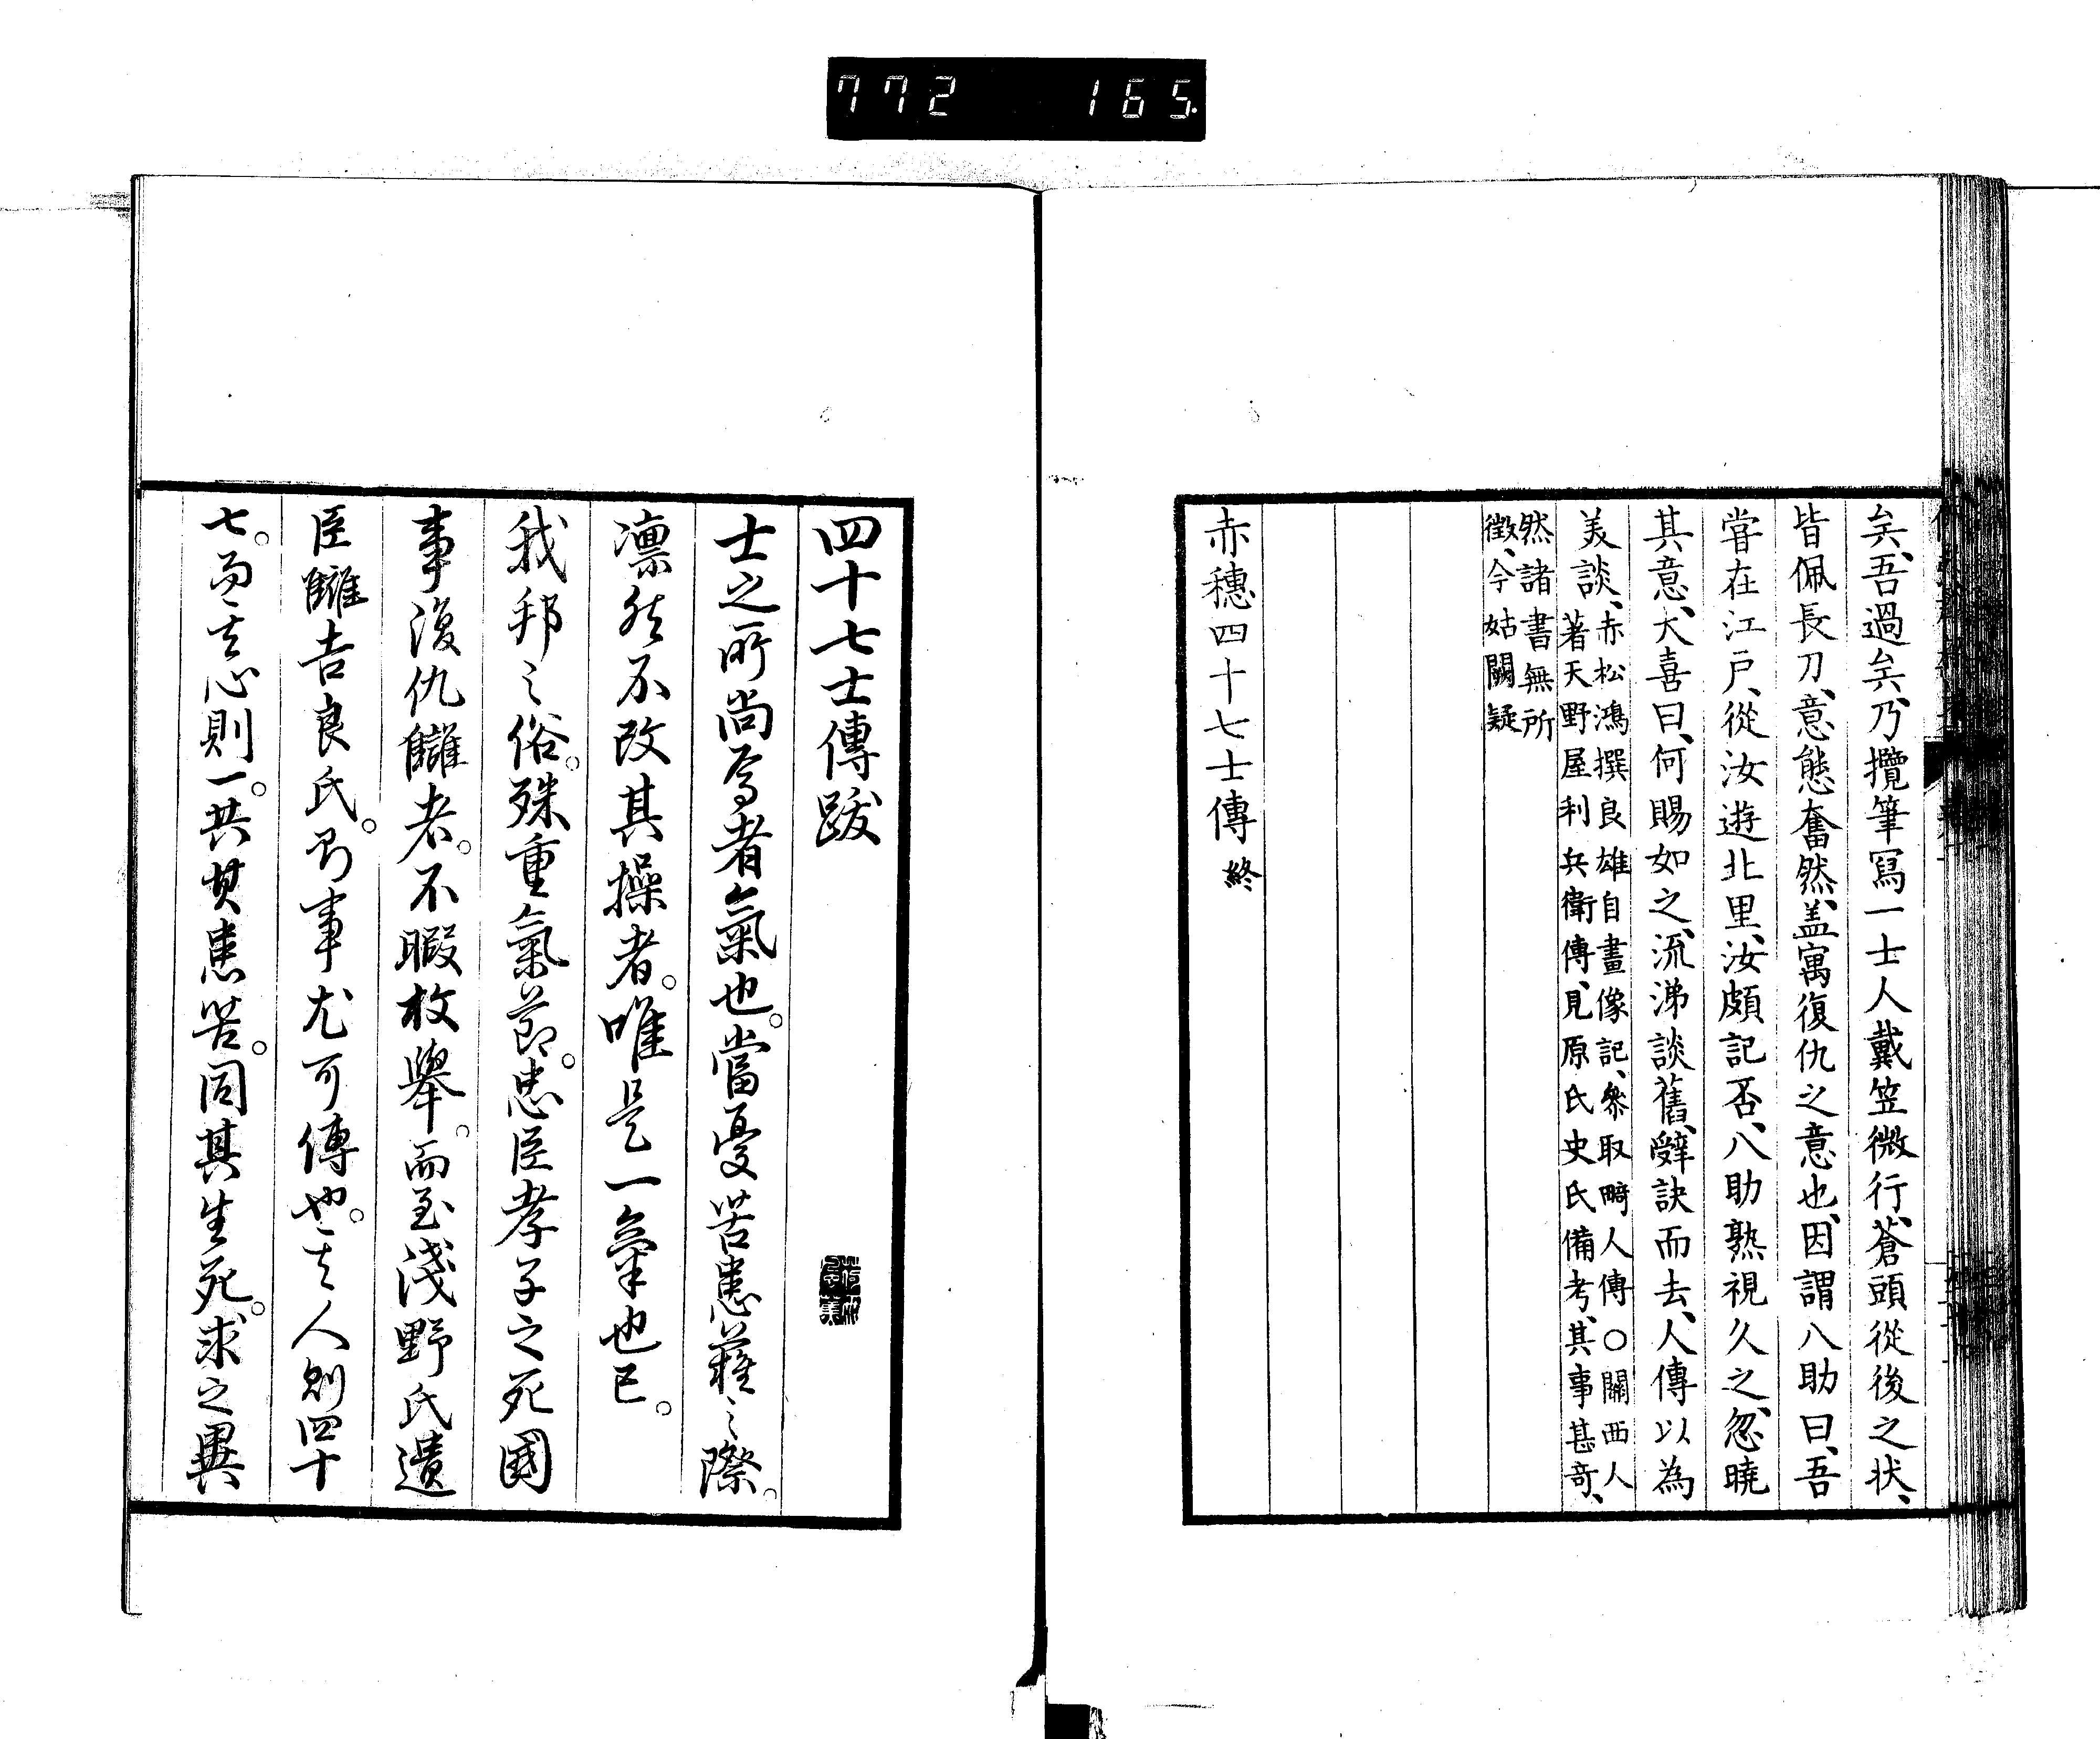 772 165.
矣、吾過矣、乃攬筆寫一士人戴笠微行、蒼頭從後之状、
皆佩長刀、意態奮然、盖寓復仇之意也、因謂八助曰、吾
甞在江戸、從汝遊北里、汝頗記否、八助熟視久之、忽曉
其意、大喜曰、何賜如之、流涕談舊、辭訣而去、人傳以為
美談、
赤松鴻撰良雄自畫像記、參取畸人傳○關西人
著天野屋利兵衛傳、見原氏史氏備考、其事甚奇、
然諸書無所
徴、今姑闕疑
赤穗四十七士傳終
四十七士傳跋
士之所尚焉者氣也。當憂苦患難之際。
凛然不改其操者。唯是一氣也已。
我邦之俗。殊重氣節。忠臣孝子之死國
事復仇讎者。不暇枚擧。而至淺野氏遺
臣讎吉良氏。則事尤可傳也。其人則四十
七。而其心則一。共其患苦。同其生死。求之異